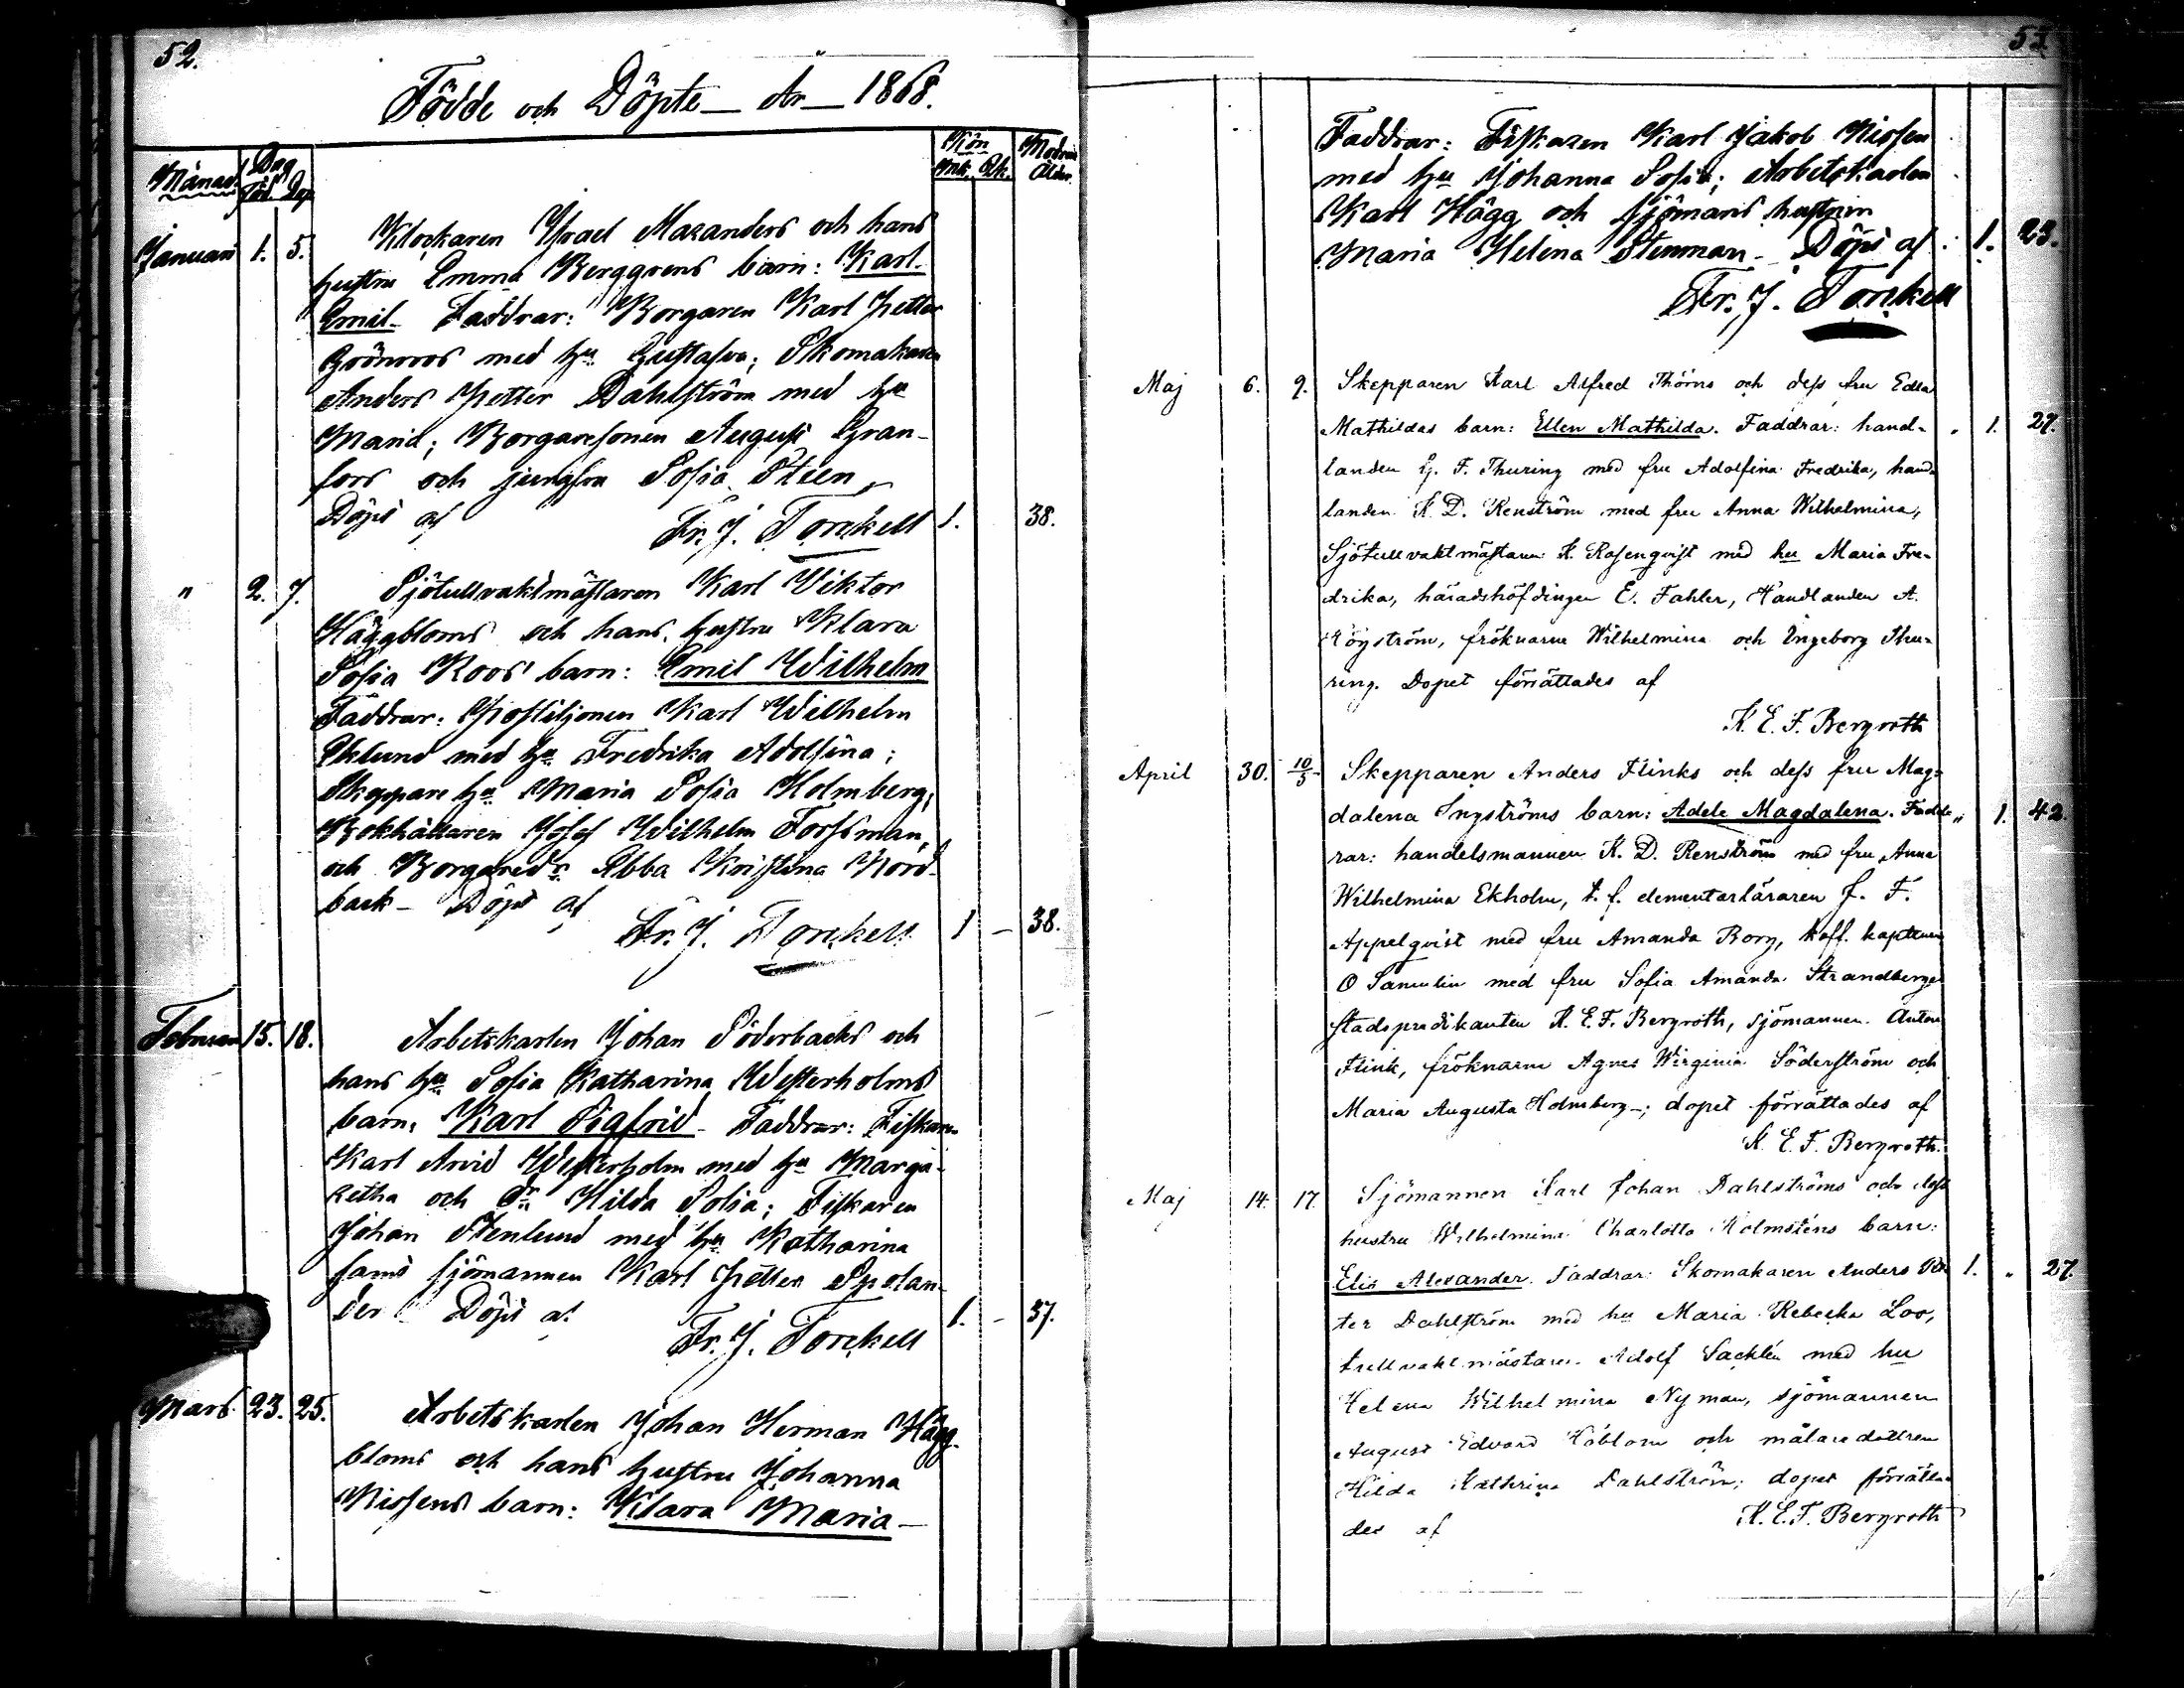 52.
Födde och Döpte — År — 1868.
Månad. Dag Född. Döp. Kön Mk. Qk. Modrens Ålder.
Januari 1. 5. Klockaren Israel Mazanders och hans
hustru Emma Berggrens barn: Karl
Emil. Faddrar: Borgaren Karl Petter
Grönroos med hu Gustafva; Skomakaren
Anders Petter Dahlström med hu
Maria; Borgaresonen August Gran-
fors och jungfru Sofia Steen,
Döpt af Fr. J. Torckell 1. 38.
" 2. 7. Sjötullvaktmästaren Karl Viktor
Häggbloms och hans hustru Klara
Sofia Roos' barn: Emil Wilhelm
Faddrar: Postiljonen Karl Wilhelm
Eklund med hu Fredrika Adolfina;
Skeppare hu Maria Sofia Holmberg,
Bokhållaren Josef Wilhelm Forssman,
och Borgaredr Ebba Kristina Nord-
back — Döpt af
Fr. J. Torckell 1 — 38.
Februari 15. 18. Arbetskarlen Johan Söderbacks och
hans hu Sofia Katharina Westerholms
barn: Karl Sigfrid — Faddrar: Fiskaren
Karl Arvid Westerholm med hu Marga-
retha och dr Hilda Sofia; Fiskaren
Johan Stenlund med hu Katharina
samt sjömannen Karl Petter Spolan-
der. Döpt af 1. — 37.
Fr. J. Torckell
Mars. 23. 25. Arbetskarlen Johan Herman Hägg-
bloms och hans hustru Johanna
Nissens barn: Klara Maria —
53
Faddrar: Fiskaren Karl Jakob Nissen
med hu Johanna Sofia; Arbetskarlen
Karl Hägg och sjömans hustrun
Maria Helena Stenman — Döpt af 1. 23.
Fr. J. Torckell
Maj 6. 9. Skepparen Karl Alfred Thörns och dess fru Edla
Mathildas barn: Ellen Mathilda. Faddrar: hand- " 1. 27.
landen G. F. Thuring med fru Adolfina Fredrika, hand-
landen K. D. Renström med fru Anna Wilhelmina,
Sjötullvaktmästaren K. Rosenqvist med hu Maria Fre-
drika, häradshöfdingen E. Fahler, Handlanden A.
Högström, fröknarne Wilhelmina och Ingeborg Thu-
ring. Dopet förrättades af
K. E. F. Bergroth
April 30. 10/5 Skepparen Anders Flinks och dess fru Mag-
dalena Ingströms barn: Adele Magdalena. Fadd- " 1. 42.
rar: handelsmannen K. D. Renström med fru Anna
Wilhelmina Ekholm, t. f. elementarläraren J. F.
Appelqvist med fru Amanda Borg, koff. kaptenen
O Samulin med fru Sofia Amanda Strandberg
stadspredikanten K. E. F. Bergroth, sjömannen Anton
Flink, fröknarne Agnes Wirginia Söderström och
Maria Augusta Holmberg —; dopet förrättades af
K. E. F. Bergroth.
Maj 14. 17. Sjömannen Karl Johan Dahlströms och dess
hustru Wilhelmina Charlotta Holmsténs barn:
Elis Alexander. Faddrar: Skomakaren Anders Pet- 1. " 27.
ter Dahlström med hu Maria Rebecka Loo,
tullvaktmästaren Adolf Sacklén med hu
Helena Wilhelmina Nyman, sjömannen
August Edvard och målaredottren
Hilda Kathrina Dahlström; dopet förrätta-
des af K. E. F. Bergroth